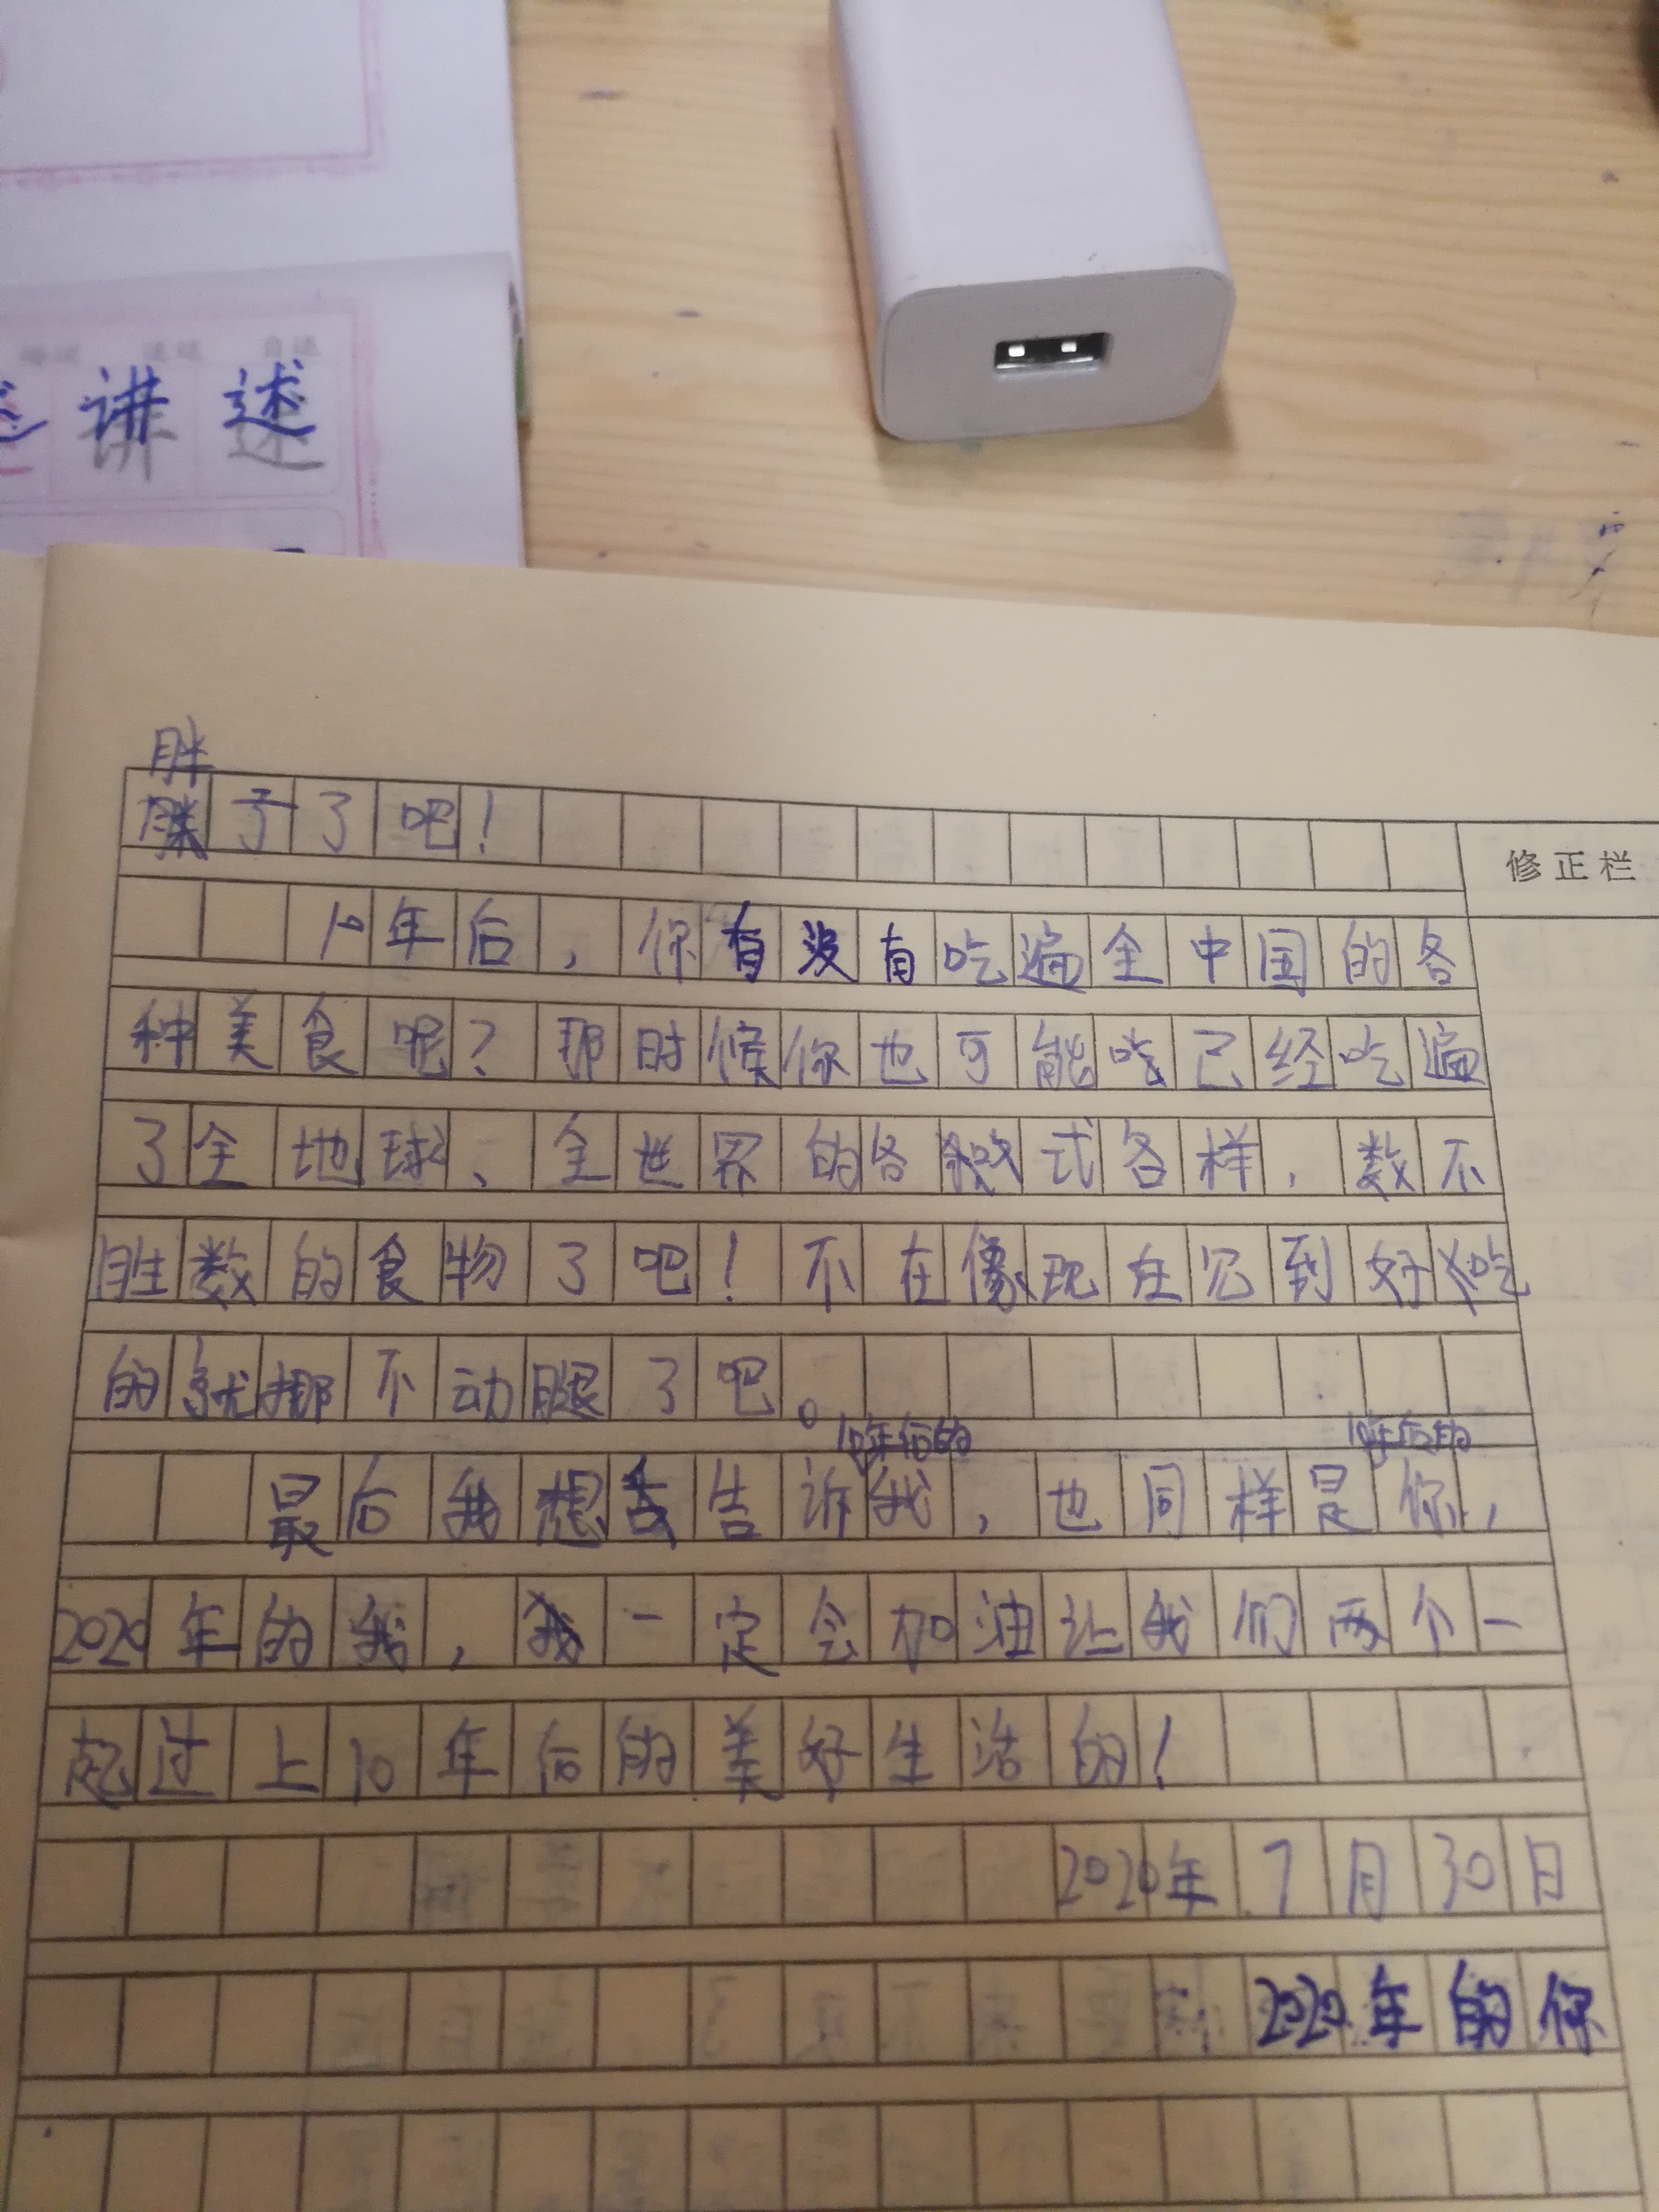 讲述
胖
子了吧！
修正栏
10年后，你有没有吃遍全中国的各
种美食呢？那时候你也可能已经吃遍
了全地球、全世界的各式各样，数不
胜数的食物了吧！不在像现在见到好吃
的就挪不动腿了吧。
10年后的 10年后的
最后我想告诉我，也同样是你，
2020年的我，我一定会加油让我们两个一
起过上10年后的美好生活的！
2020年7月30日
2020年的你